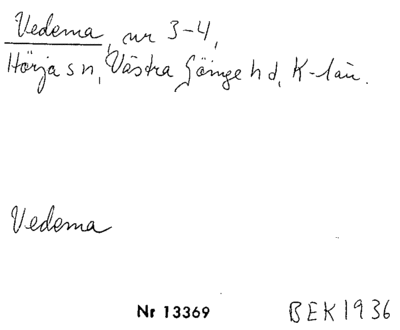 Vedema, nr 3-4,
Hörja sn, Västra Göinge hd, K-län.
Vedema
Nr 13369 BEK1936